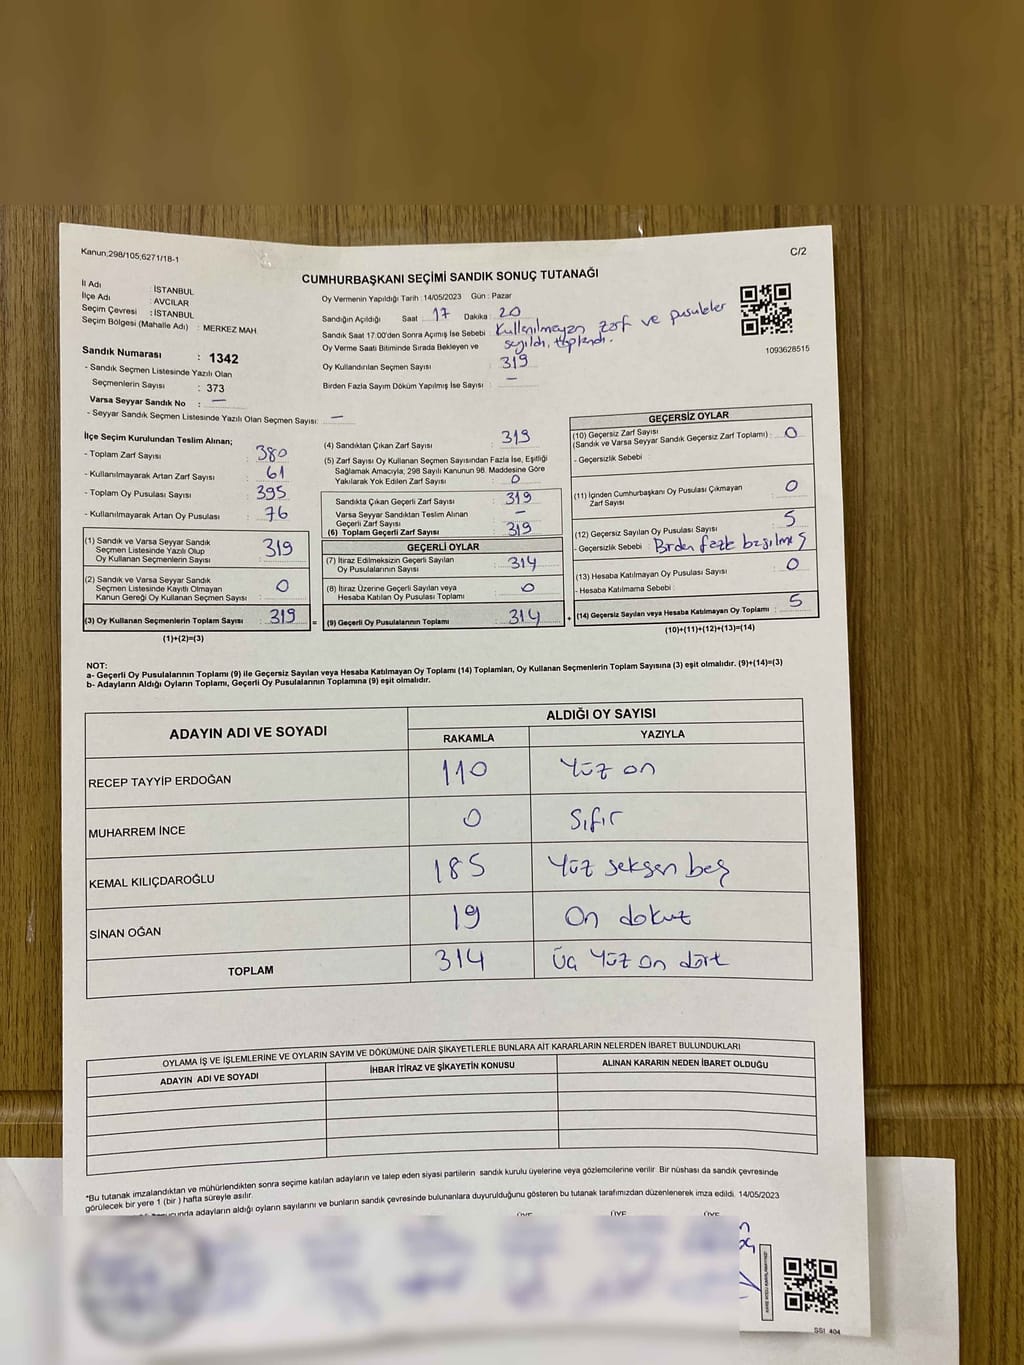 Kanun;298/105;6271/18-1
C/2
CUMHURBAŞKANI SEÇİMİ SANDIK SONUÇ TUTANAĞI
İl Adı : İSTANBUL
İlçe Adı : AVCILAR
Seçim Çevresi : İSTANBUL
Seçim Bölgesi (Mahalle Adı) : MERKEZ MAH.
Oy Vermenin Yapıldığı Tarih : 14/05/2023 Gün : Pazar
Sandığın Açıldığı Saat 17 Dakika : 20
Sandık Saat 17:00'den Sonra Açımış İse Sebebi : Kullanılmayan zarf ve pusulalar
sayıldı, toplandı.
Oy Verme Saati Bitiminde Sırada Bekleyen ve
Oy Kullandırılan Seçmen Sayısı : 319
Birden Fazla Sayım Döküm Yapılmış İse Sayısı : —
1093628515
Sandık Numarası : 1342
- Sandık Seçmen Listesinde Yazılı Olan
Seçmenlerin Sayısı : 373
Varsa Seyyar Sandık No : —
- Seyyar Sandık Seçmen Listesinde Yazılı Olan Seçmen Sayısı: —
İlçe Seçim Kurulundan Teslim Alınan;
- Toplam Zarf Sayısı : 380
- Kullanılmayarak Artan Zarf Sayısı : 61
- Toplam Oy Pusulası Sayısı : 395
- Kullanılmayarak Artan Oy Pusulası : 76
(1) Sandık ve Varsa Seyyar Sandık
Seçmen Listesinde Yazılı Olup
Oy Kullanan Seçmenlerin Sayısı : 319
(2) Sandık ve Varsa Seyyar Sandık
Seçmen Listesinde Kayıtlı Olmayan
Kanun Gereği Oy Kullanan Seçmen Sayısı : 0
(3) Oy Kullanan Seçmenlerin Toplam Sayısı : 319 =
(1)+(2)=(3)
(4) Sandıktan Çıkan Zarf Sayısı : 319
(5) Zarf Sayısı Oy Kullanan Seçmen Sayısından Fazla İse, Eşitliği
Sağlamak Amacıyla; 298 Sayılı Kanunun 98. Maddesine Göre
Yakılarak Yok Edilen Zarf Sayısı : 0
Sandıkta Çıkan Geçerli Zarf Sayısı : 319
Varsa Seyyar Sandıktan Teslim Alınan
Geçerli Zarf Sayısı : —
(6) Toplam Geçerli Zarf Sayısı : 319
GEÇERLİ OYLAR
(7) İtiraz Edilmeksizin Geçerli Sayılan
Oy Pusulalarının Sayısı : 314
(8) İtiraz Üzerine Geçerli Sayılan veya
Hesaba Katılan Oy Pusulası Toplamı : 0
(9) Geçerli Oy Pusulalarının Toplamı : 314 +
GEÇERSİZ OYLAR
(10) Geçersiz Zarf Sayısı
(Sandık ve Varsa Seyyar Sandık Geçersiz Zarf Toplamı) : 0
- Geçersizlik Sebebi :
(11) İçinden Cumhurbaşkanı Oy Pusulası Çıkmayan
Zarf Sayısı : 0
(12) Geçersiz Sayılan Oy Pusulası Sayısı : 5
- Geçersizlik Sebebi : Birden fazla basılmış
(13) Hesaba Katılmayan Oy Pusulası Sayısı : 0
- Hesaba Katılmama Sebebi :
(14) Geçersiz Sayılan veya Hesaba Katılmayan Oy Toplamı : 5
(10)+(11)+(12)+(13)=(14)
NOT:
a- Geçerli Oy Pusulalarının Toplamı (9) ile Geçersiz Sayılan veya Hesaba Katılmayan Oy Toplamı (14) Toplamları, Oy Kullanan Seçmenlerin Toplam Sayısına (3) eşit olmalıdır. (9)+(14)=(3)
b- Adayların Aldığı Oyların Toplamı, Geçerli Oy Pusulalarının Toplamına (9) eşit olmalıdır.
ADAYIN ADI VE SOYADI ALDIĞI OY SAYISI
RAKAMLA YAZIYLA
RECEP TAYYİP ERDOĞAN 110 Yüz on
MUHARREM İNCE 0 Sıfır
KEMAL KILIÇDAROĞLU 185 Yüz seksen beş
SİNAN OĞAN 19 On dokuz
TOPLAM 314 Üç Yüz on dört
OYLAMA İŞ VE İŞLEMLERİNE VE OYLARIN SAYIM VE DÖKÜMÜNE DAİR ŞİKAYETLERLE BUNLARA AİT KARARLARIN NELERDEN İBARET BULUNDUKLARI
ADAYIN ADI VE SOYADI İHBAR İTİRAZ VE ŞİKAYETİN KONUSU ALINAN KARARIN NEDEN İBARET OLDUĞU
*Bu tutanak imzalandıktan ve mühürlendikten sonra seçime katılan adayların ve talep eden siyasi partilerin sandık kurulu üyelerine veya gözlemcilerine verilir. Bir nüshası da sandık çevresinde
görülecek bir yere 1 (bir ) hafta süreyle asılır.
adayların aldığı oyların sayılarını ve bunların sandık çevresinde bulunanlara duyurulduğunu gösteren bu tutanak tarafımızdan düzenlenerek imza edildi. 14/05/2023
ÜYE ÜYE ÜYE
SSI_404